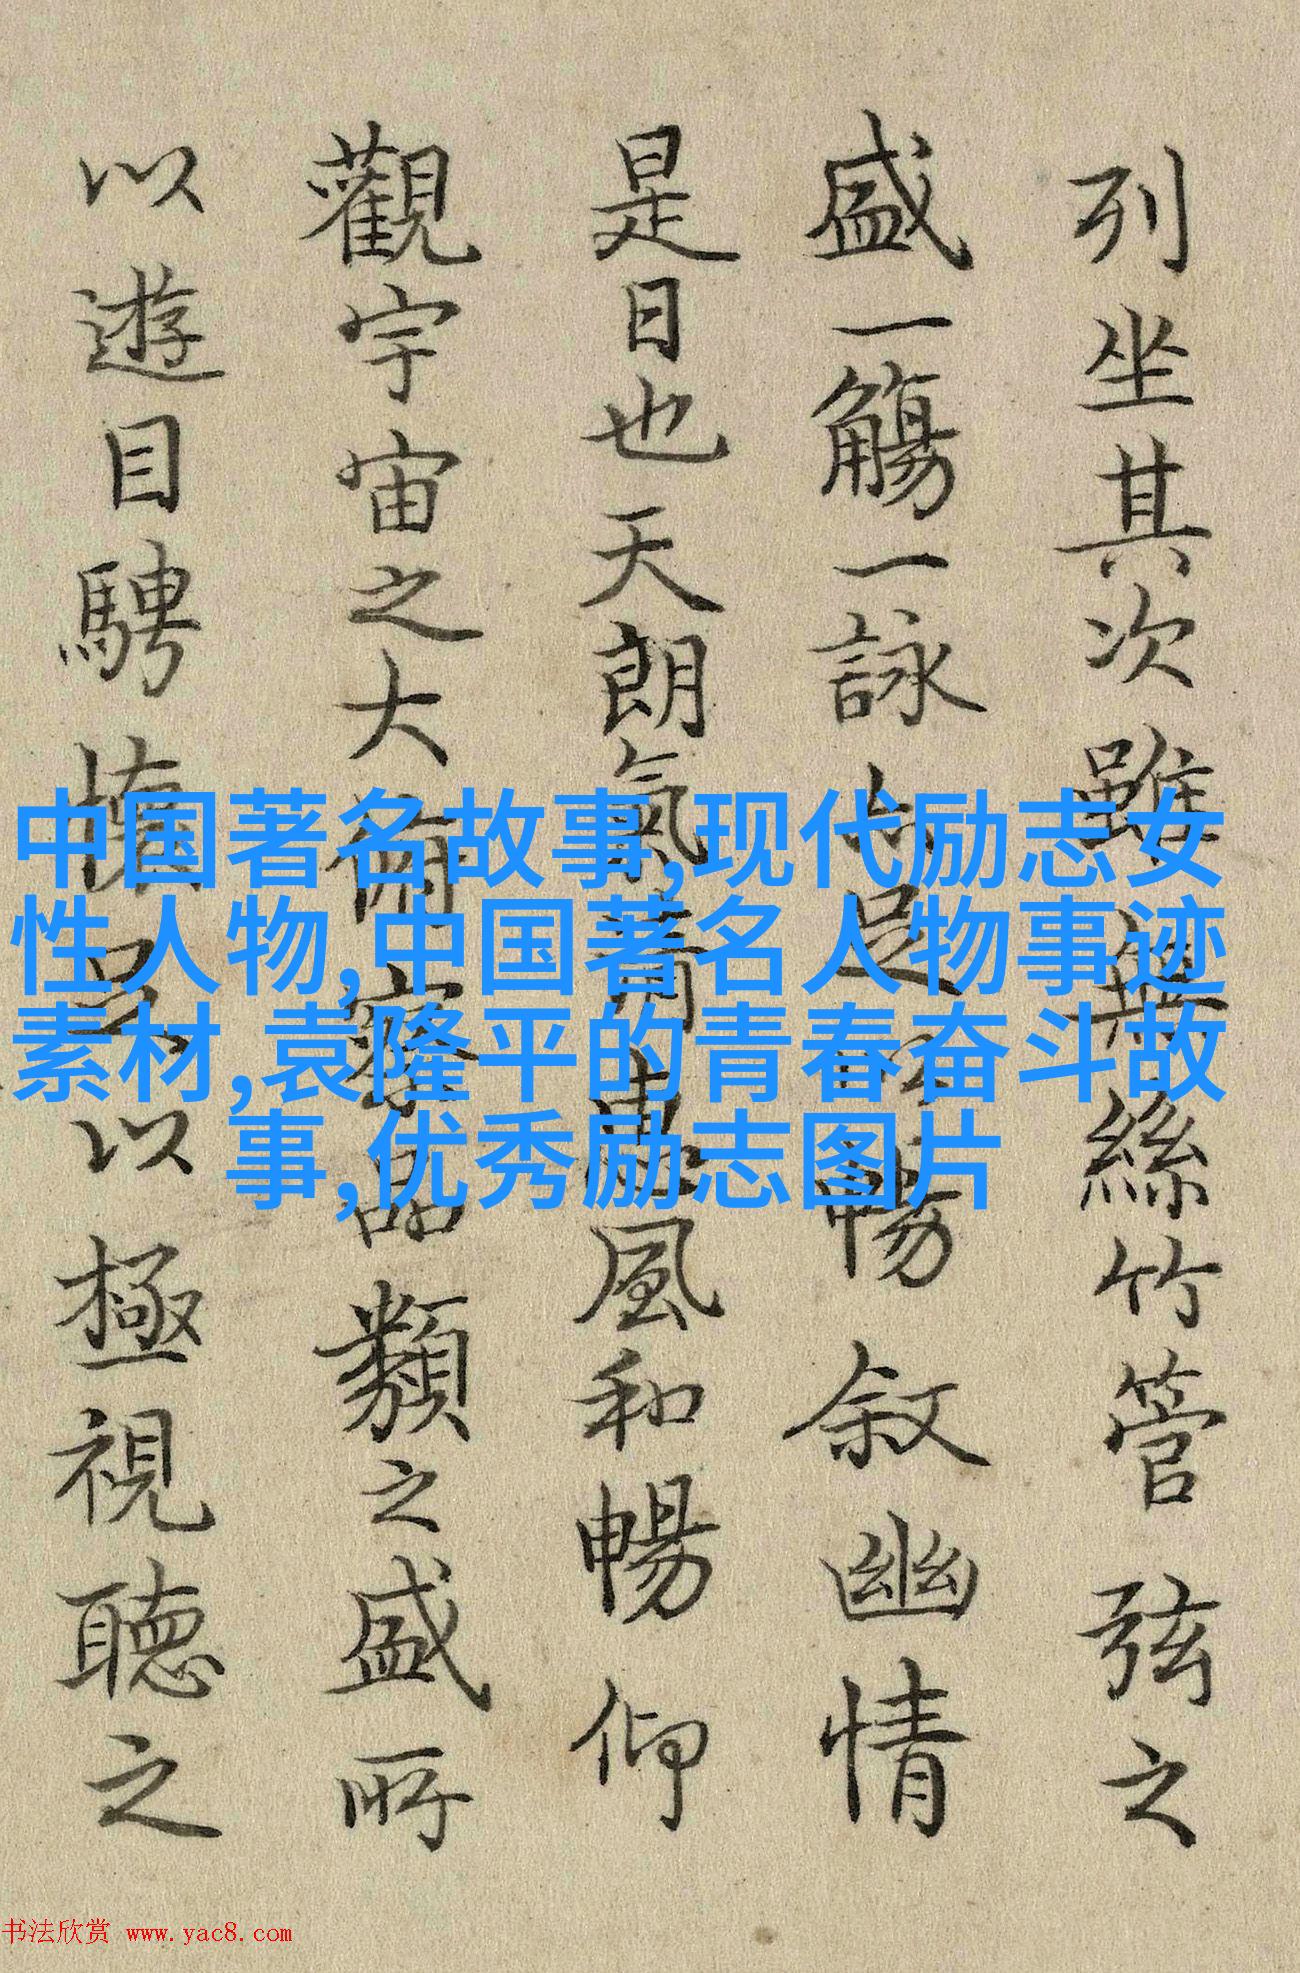 列坐其次雖無絲竹管弦之
盛一觴一詠亦足以暢叙幽情
是日也天朗氣清惠風和暢仰
觀宇宙之大俯察品類之盛所
以遊目騁懷足以極視聽之
中国著名故事,现代励志女
性人物,中国著名人物事迹
素材,袁隆平的青春奋斗故
事,优秀励志图片
书法欣赏 www.yac8.com